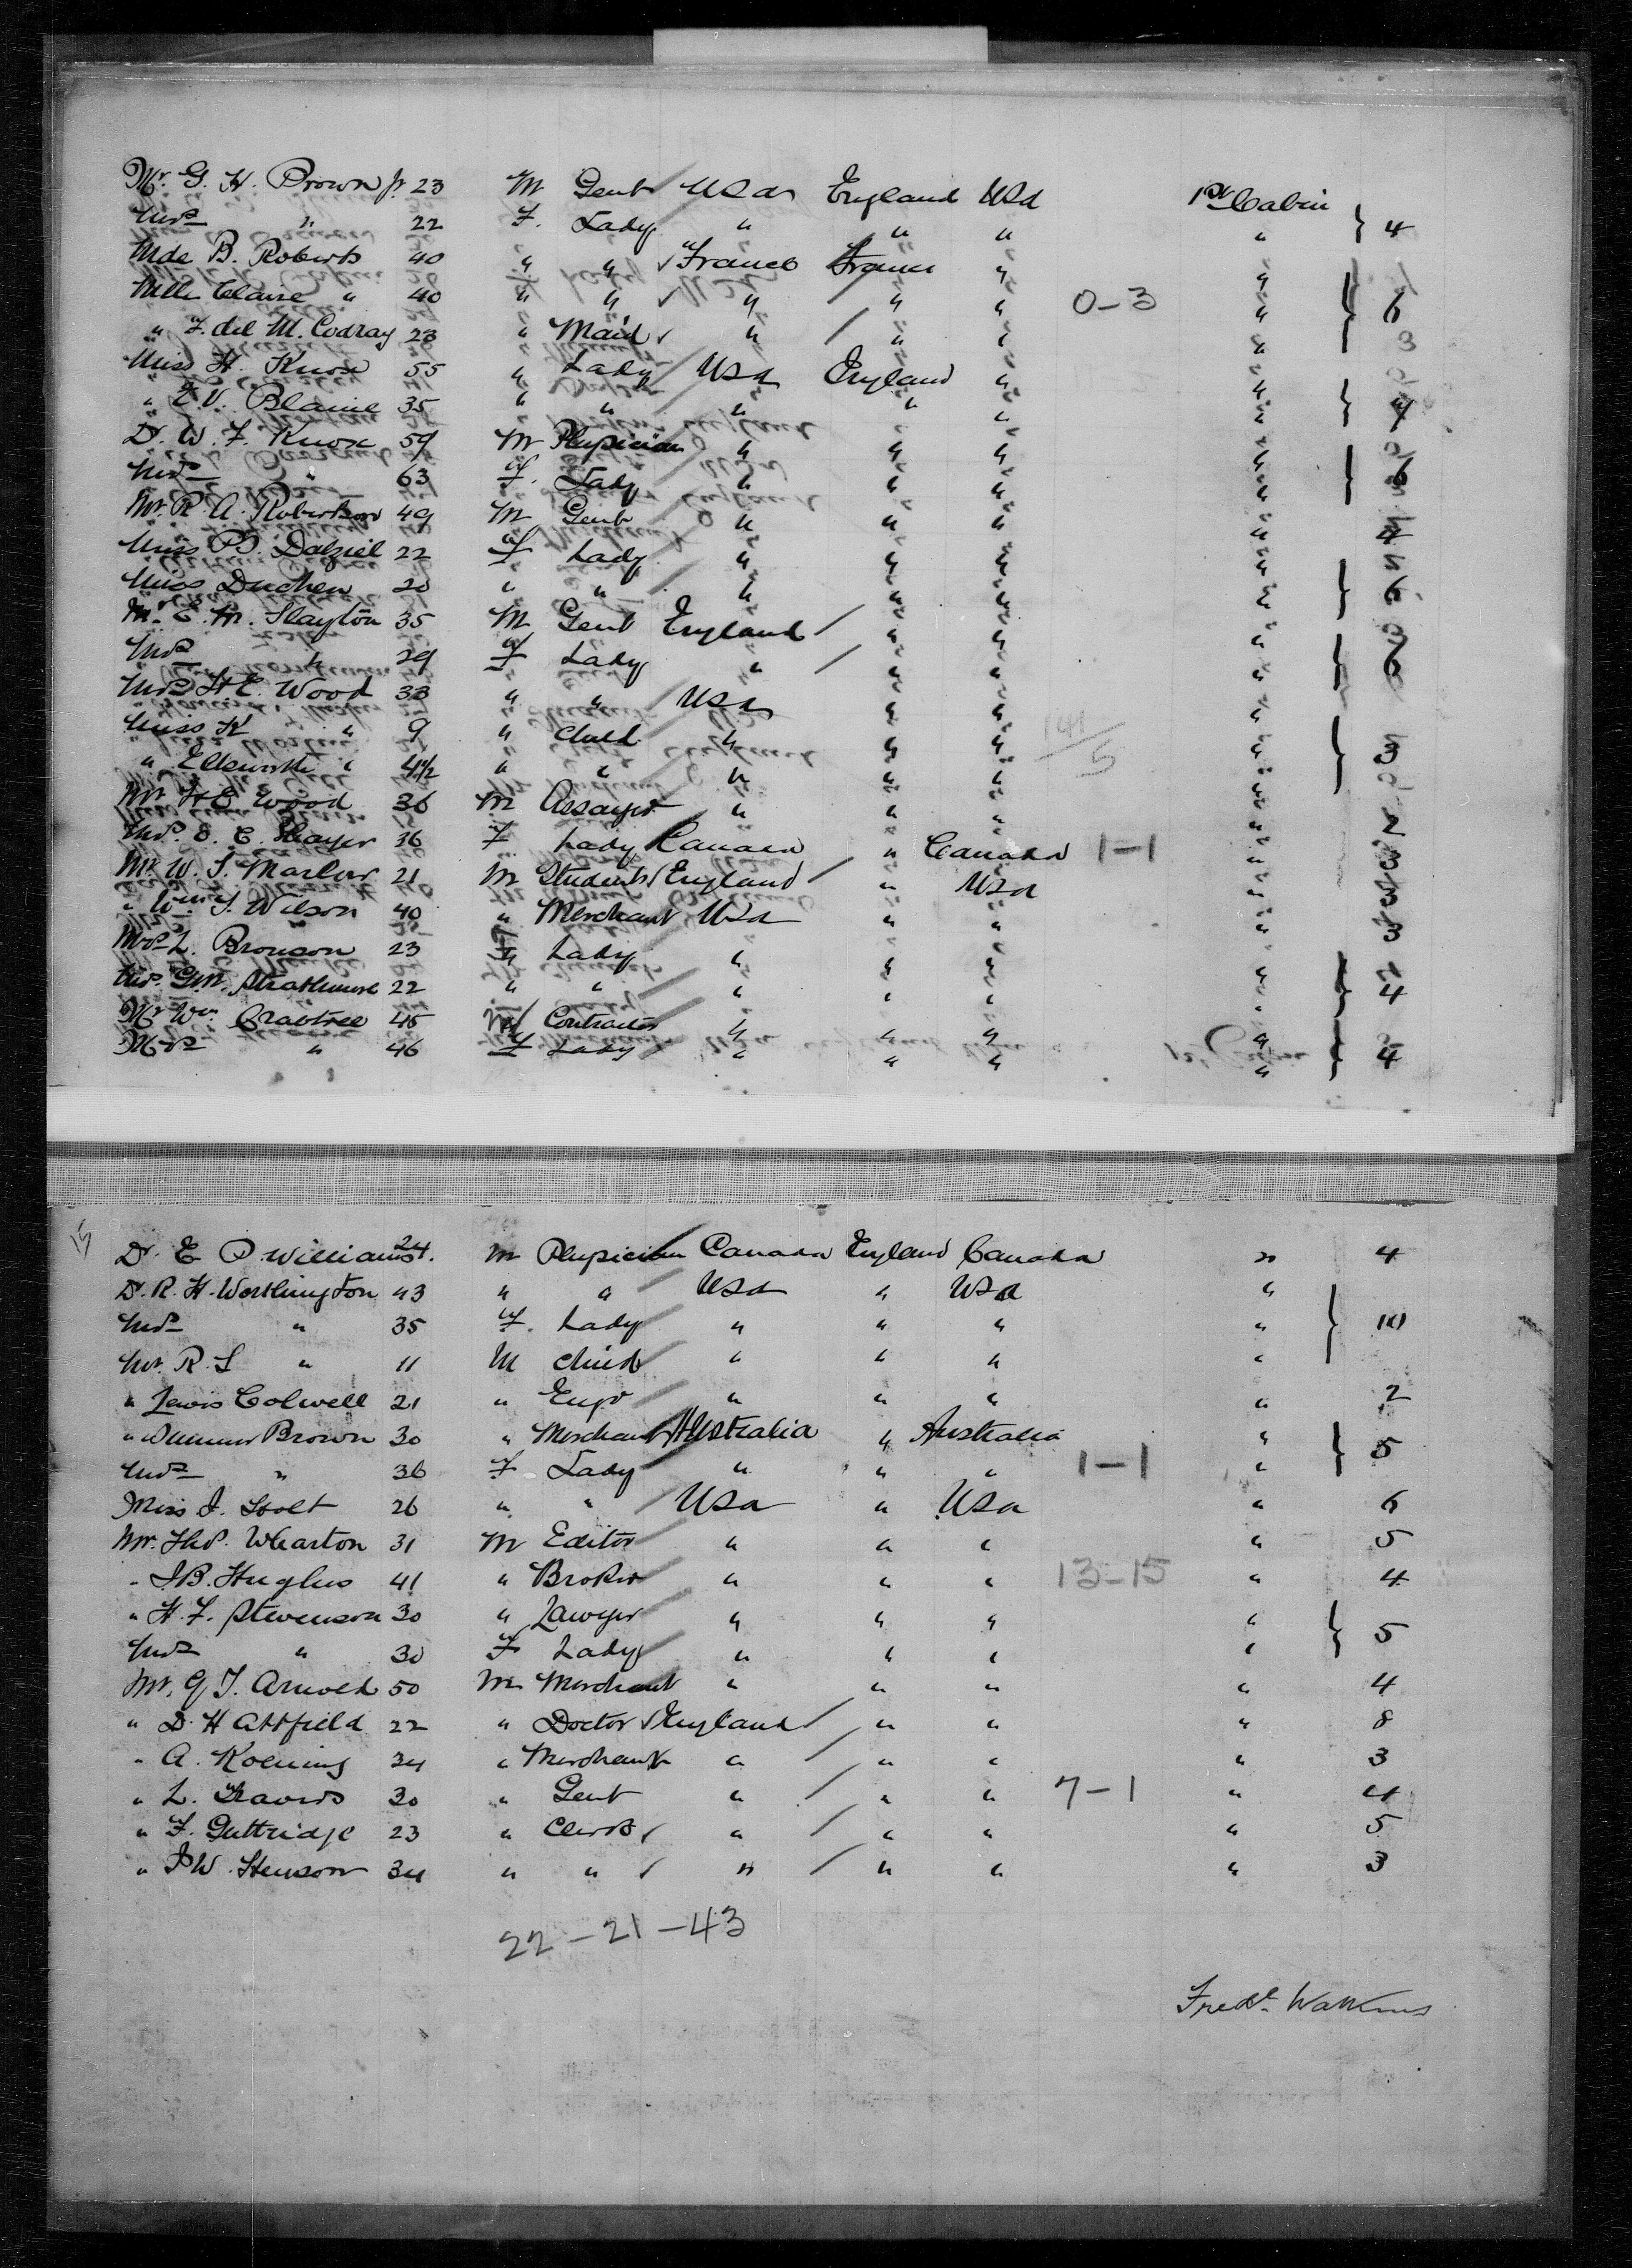 Mr. G. H. Brown jr 23 M Gent USA England USA 1st Cabin
Mrs " 22 F. Lady " " " " } 4
Mde B. Roberts 40 " " France France " "
Mlle Claire " 40 " " " " " 0-3 " } 6
" F. del M. Codray 23 " Maid " " " "
Miss H. Knox 55 " Lady USA England " "
" E. V. Blaine 35 " " " " " " } 4
Dr. W. F. Knox 59 M Physician " " " "
Mrs " 63 F. Lady " " " " } 6
Mr. R. A. Robertson 49 M Gent " " " " 4
Miss B. Dalziel 22 F Lady " " " "
Miss Duchen 20 " " " " " " } 6
Mr. E. M. Slayton 35 M Gent England " " "
Mrs " 29 F Lady " " " " } 6
Mrs H. E. Wood 33 " " USA " " "
Miss K " 9 " Child " " " 141/5 " } 3
" Ellsworth " 4 1/2 " " " " " "
Mr H E Wood 36 M Assayer " " " " 2
Mrs. E. C. Thayer 36 F Lady Canada " Canada 1-1 " 3
Mr. W. S. Marlow 21 M Student England " USA " 3
" Wm. S. Wilson 40 " Merchant USA " " " 3
Mrs L. Bronson 23 F Lady " " " "
Mrs. G.M. Strathmore 22 " " " " " " } 4
Mr Wm. Crabtree 45 M Contractor " " " "
Mrs " 46 F Lady " " " " } 4
15
Dr. E P. Williams 24. M Physician Canada England Canada " 4
Dr. R. H. Worthington 43 " " USA " USA "
Mrs " 35 F. Lady " " " " } 10
Mr. R. S " 11 M Child " " " "
" Lewis Colwell 21 " Engr " " " " 2
" Brown 30 " Merchant Australia " Australia "
Mrs " 36 F Lady " " " 1-1 " } 5
Miss J. Stolt 26 " " USA " USA " 6
Mr. Thos. Wharton 31 M Editor " " " " 5
" J.B. Hughes 41 " Broker " " " 13-15 " 4
" H. F. Stevenson 30 " Lawyer " " " "
Mrs " 30 F Lady " " " " } 5
Mr. G J. Arnold 50 M Merchant " " " " 4
" D. H Attfield 22 " Doctor England " " " 8
" A. Koening 34 " Merchant " " " " 3
" L. Travers 30 " Gent " " " 7-1 " 4
" F. Guttridge 23 " Clerk " " " " 5
" J W. Henson 34 " " " " " " 3
22-21-43
Fredk. Watkins